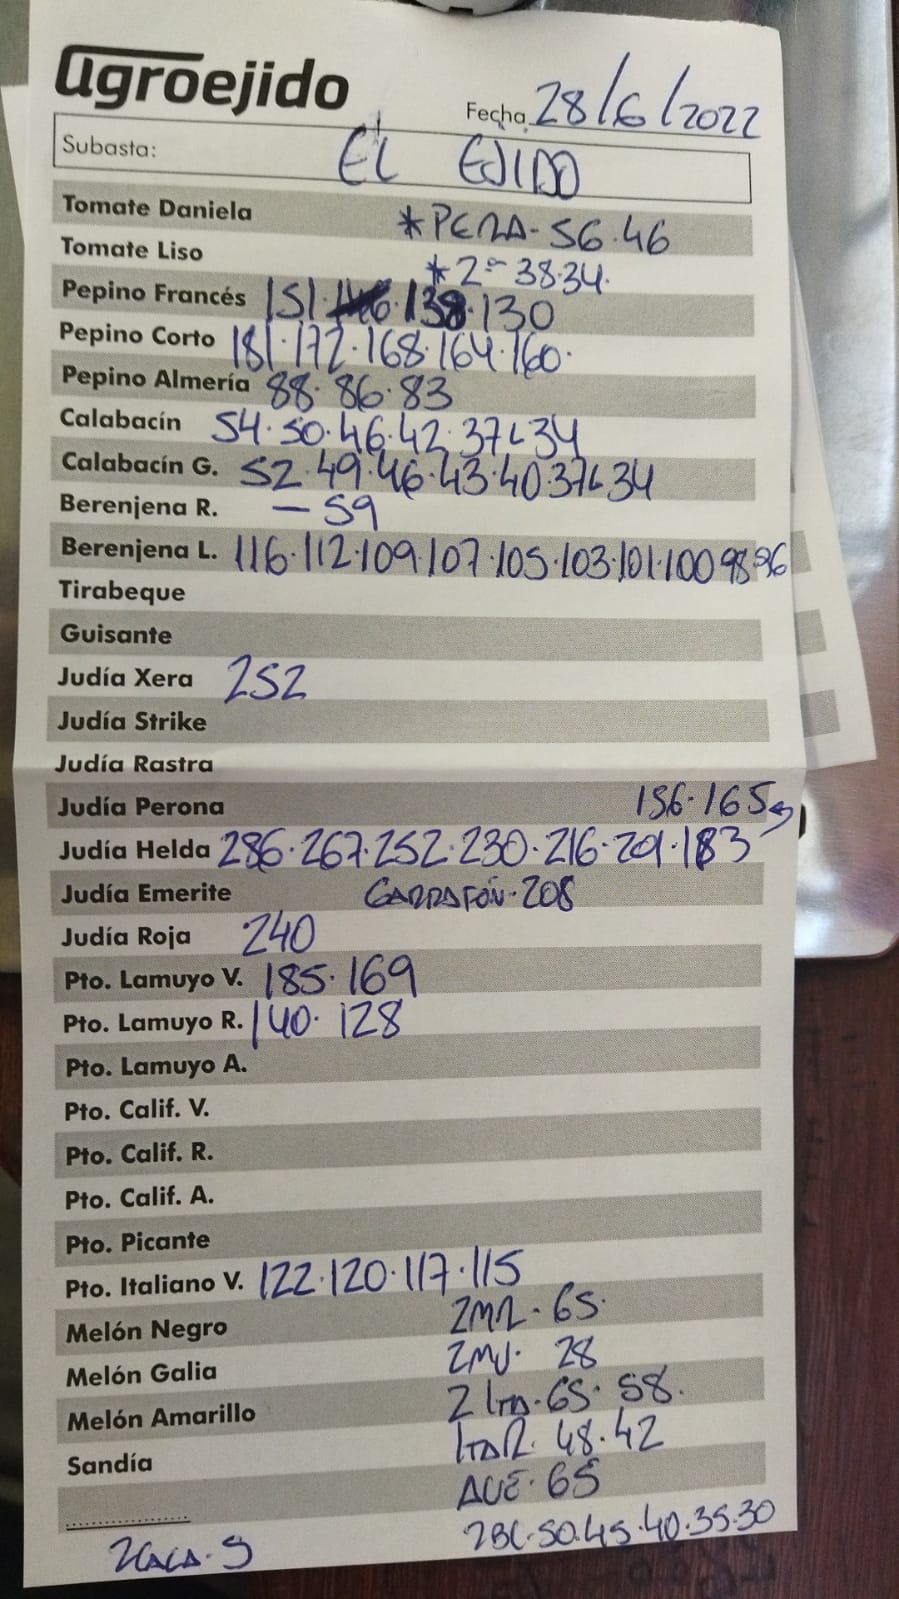 agroejido
Fecha 28/6/2022
Subasta: EL EJIDO
Tomate Daniela *PERA-56.46
Tomate Liso *2ª 38.34.
Pepino Francés 151. 138.130
Pepino Corto 181.172.168.164.160.
Pepino Almería 88.86.83
Calabacín 54.50.46.42.37L34
Calabacín G. 52.49.46.43.40.37L34
Berenjena R. -59
Berenjena L. 116.112.109.107.105.103.101.100 98.96
Tirabeque
Guisante
Judía Xera 252
Judía Strike
Judía Rastra
Judía Perona 156.165
Judía Helda 286.267.252.230.216.201.183
Judía Emerite GARRAFÓN.208
Judía Roja 240
Pto. Lamuyo V. 185.169
Pto. Lamuyo R. 140.128
Pto. Lamuyo A.
Pto. Calif. V.
Pto. Calif. R.
Pto. Calif. A.
Pto. Picante
Pto. Italiano V. 122.120.117.115
Melón Negro 65.
Melón Galia 28
Melón Amarillo 65.58.
Sandía 48.42
65
50.45.40.35.30